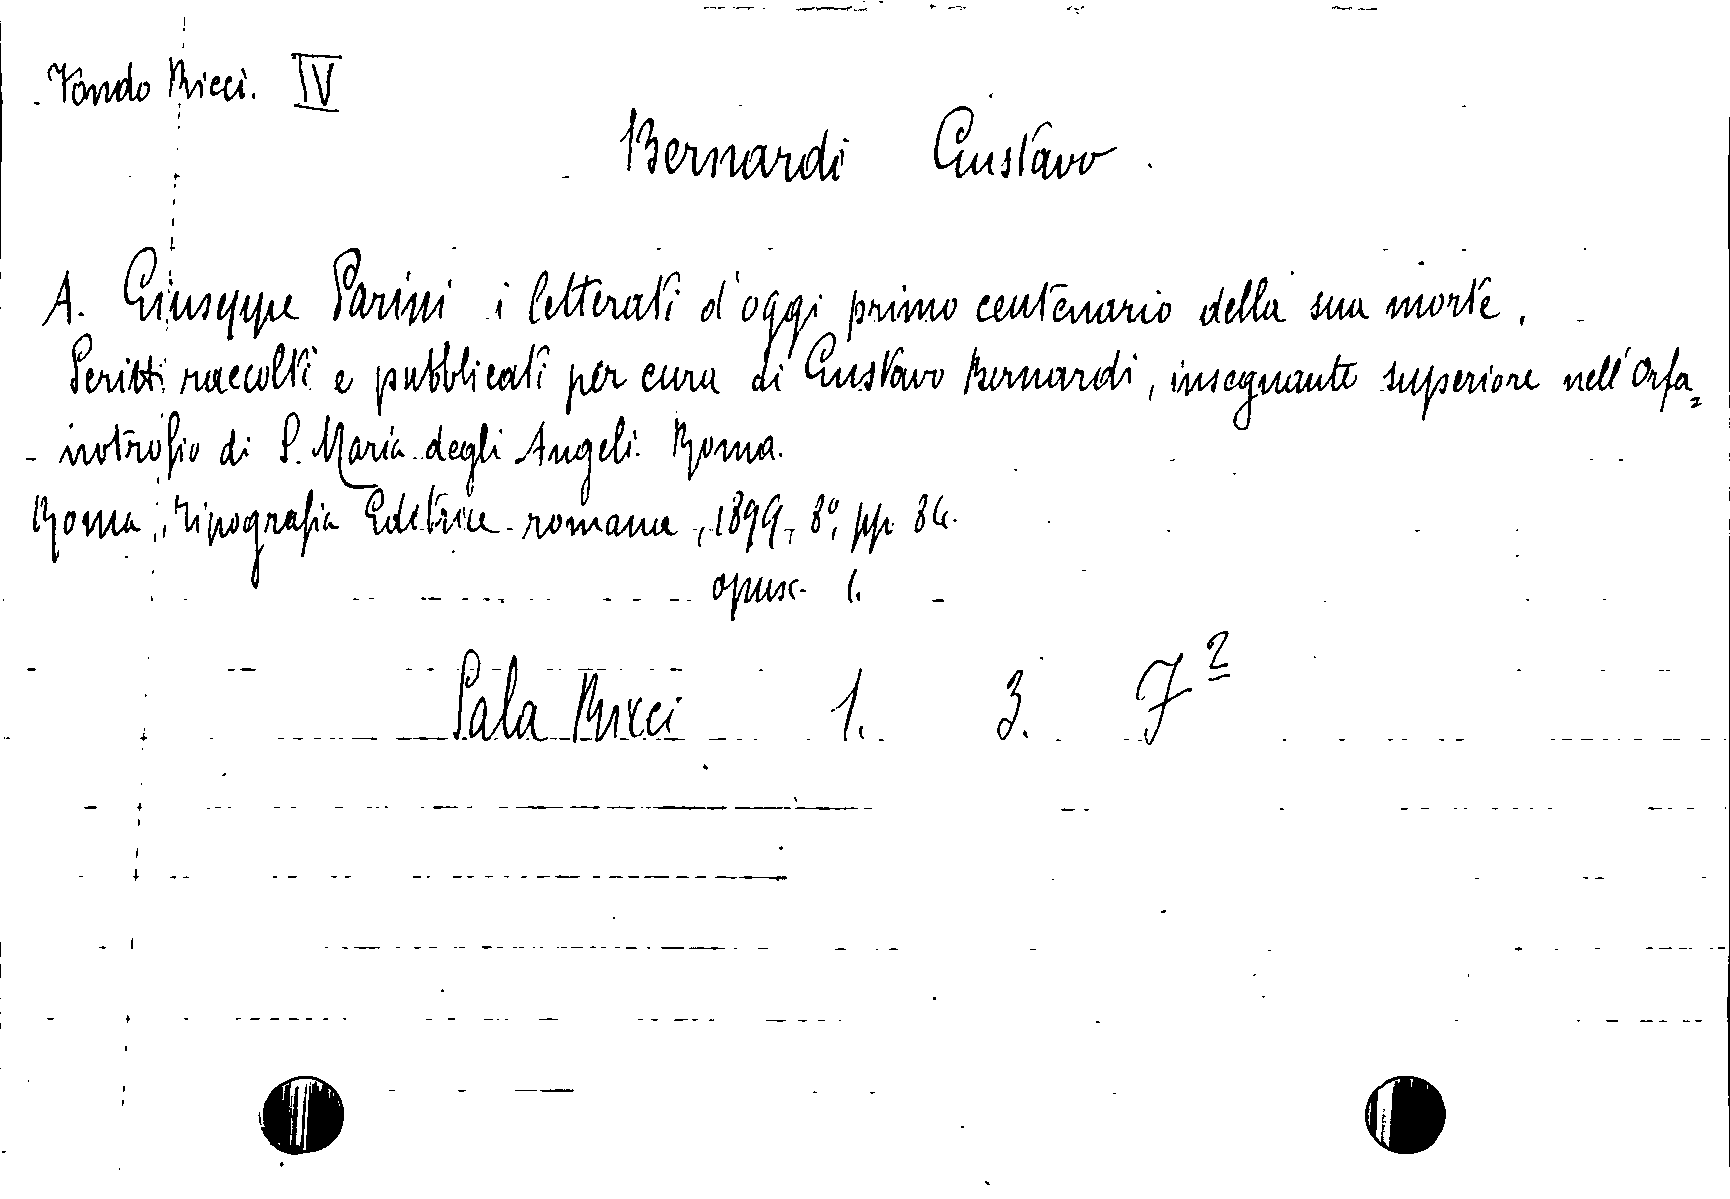 Fondo Ricci. IV
Bernardi Gustavo.
A. Giuseppe Parini i letterati d'oggi primo centenario della sua morte.
Scritti raccolti e pubblicati per cura di Gustavo Bernardi, insegnante superiore nell'Orfa=
notrofio di S. Maria degli Angeli. Roma.
Roma, Tipografia Editrice romana, 1899, 8°, pp. 84.
opusc. 1.
Sala Ricci 1. 3. 7²